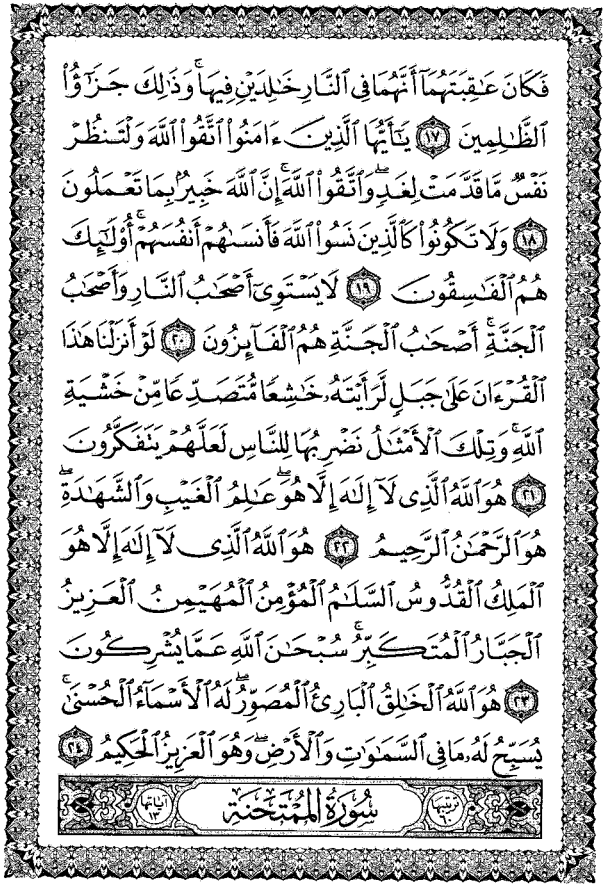 فَكَانَ عَٰقِبَتَهُمَآ أَنَّهُمَا فِى ٱلنَّارِ خَٰلِدَيْنِ فِيهَا ۚ وَذَٰلِكَ جَزَٰٓؤُا۟
ٱلظَّٰلِمِينَ ١٧ يَٰٓأَيُّهَا ٱلَّذِينَ ءَامَنُوا۟ ٱتَّقُوا۟ ٱللَّهَ وَلْتَنظُرْ
نَفْسٌ مَّا قَدَّمَتْ لِغَدٍ ۖ وَٱتَّقُوا۟ ٱللَّهَ ۚ إِنَّ ٱللَّهَ خَبِيرٌۢ بِمَا تَعْمَلُونَ
١٨ وَلَا تَكُونُوا۟ كَٱلَّذِينَ نَسُوا۟ ٱللَّهَ فَأَنسَىٰهُمْ أَنفُسَهُمْ ۚ أُو۟لَٰٓئِكَ
هُمُ ٱلْفَٰسِقُونَ ١٩ لَا يَسْتَوِىٓ أَصْحَٰبُ ٱلنَّارِ وَأَصْحَٰبُ
ٱلْجَنَّةِ ۚ أَصْحَٰبُ ٱلْجَنَّةِ هُمُ ٱلْفَآئِزُونَ ٢٠ لَوْ أَنزَلْنَا هَٰذَا
ٱلْقُرْءَانَ عَلَىٰ جَبَلٍ لَّرَأَيْتَهُۥ خَٰشِعًا مُّتَصَدِّعًا مِّنْ خَشْيَةِ
ٱللَّهِ ۚ وَتِلْكَ ٱلْأَمْثَٰلُ نَضْرِبُهَا لِلنَّاسِ لَعَلَّهُمْ يَتَفَكَّرُونَ
٢١ هُوَ ٱللَّهُ ٱلَّذِى لَآ إِلَٰهَ إِلَّا هُوَ ۖ عَٰلِمُ ٱلْغَيْبِ وَٱلشَّهَٰدَةِ ۖ
هُوَ ٱلرَّحْمَٰنُ ٱلرَّحِيمُ ٢٢ هُوَ ٱللَّهُ ٱلَّذِى لَآ إِلَٰهَ إِلَّا هُوَ
ٱلْمَلِكُ ٱلْقُدُّوسُ ٱلسَّلَٰمُ ٱلْمُؤْمِنُ ٱلْمُهَيْمِنُ ٱلْعَزِيزُ
ٱلْجَبَّارُ ٱلْمُتَكَبِّرُ ۚ سُبْحَٰنَ ٱللَّهِ عَمَّا يُشْرِكُونَ
٢٣ هُوَ ٱللَّهُ ٱلْخَٰلِقُ ٱلْبَارِئُ ٱلْمُصَوِّرُ ۖ لَهُ ٱلْأَسْمَآءُ ٱلْحُسْنَىٰ ۚ
يُسَبِّحُ لَهُۥ مَا فِى ٱلسَّمَٰوَٰتِ وَٱلْأَرْضِ ۖ وَهُوَ ٱلْعَزِيزُ ٱلْحَكِيمُ ٢٤
ترتيبها ٦٠ سُورَةُ المُمْتَحنَة آياتها ١٣